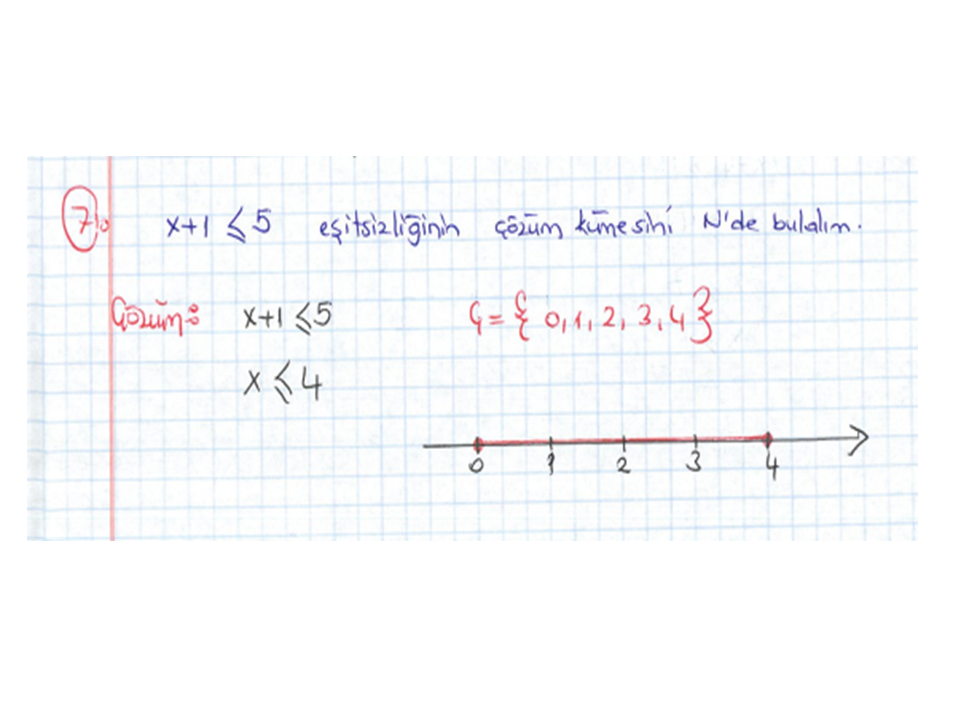 7) x+1 ≤ 5 eşitsizliğinin çözüm kümesini N'de bulalım.
Çözüm: x+1 ≤ 5 Ç = { 0, 1, 2, 3, 4 }
x ≤ 4
0 1 2 3 4